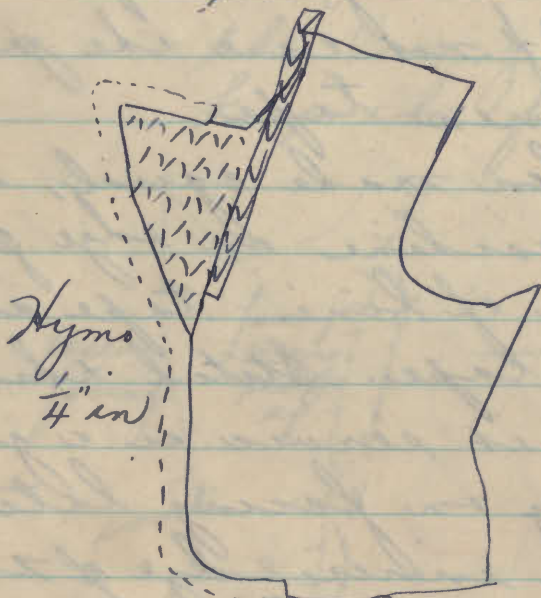 Hymo
1/4" in